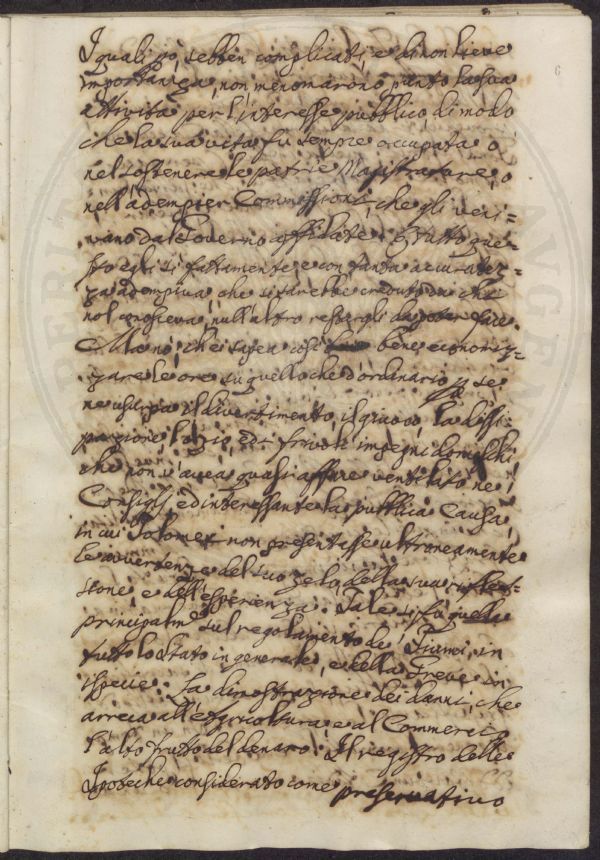 6
I quali però, sebben complicati, e di non lieve
importanza, non menomarono punto la sua
attività per l'interesse pubblico, di modo
che la sua vita fù sempre occupata o
nel sostenere le patrie Magistrature, o
nell'adempier Commissioni, che gli veni=
vano dal Governo affidate. E tutto que=
sto egli sì fattamente, e con tanta accuratez=
za adempiva, che si sarebbe creduto da chi
nol conosceva, null'altro restargli da poter fare.
Ma no, che ei sapea così bene economiz=
zare le ore su quello che d'ordinario se
ne usurpa il divertimento, il giuoco, la dissi=
pazione, l'ozio, ed i frivoli impegni domestici,
che non v'avea quasi affare ventilato ne'
Consigli, ed interessante la pubblica Causa,
in cui Tolomei non presentasse ultroneamente
le avvertenze del suo zelo, della sua rifles=
sione, e dell'esperienza. Tale si fù quella
principalm.e sul regolamento de' Fiumi, in
tutto lo Stato in generale, e della Greve in
ispecie: La dimostrazione dei danni, che
arreca all'Agricoltura, e al Commercio
l'alto frutto del denaro: Il registro delle
Ipoteche considerato come preservativo